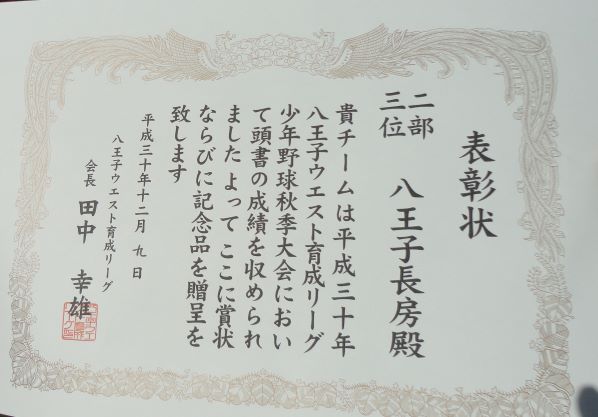 表彰状
二部
三位
八王子長房殿
貴チームは平成三十年
八王子ウエスト育成リーグ
少年野球秋季大会におい
て頭書の成績を収められ
ました よって ここに賞状
ならびに記念品を贈呈を
致します
平成三十年十二月 九 日
八王子ウエスト育成リーグ
会長 田中 幸雄